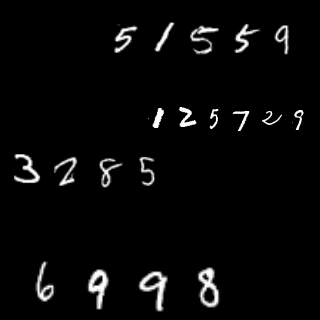 51559
125729
3285
6998